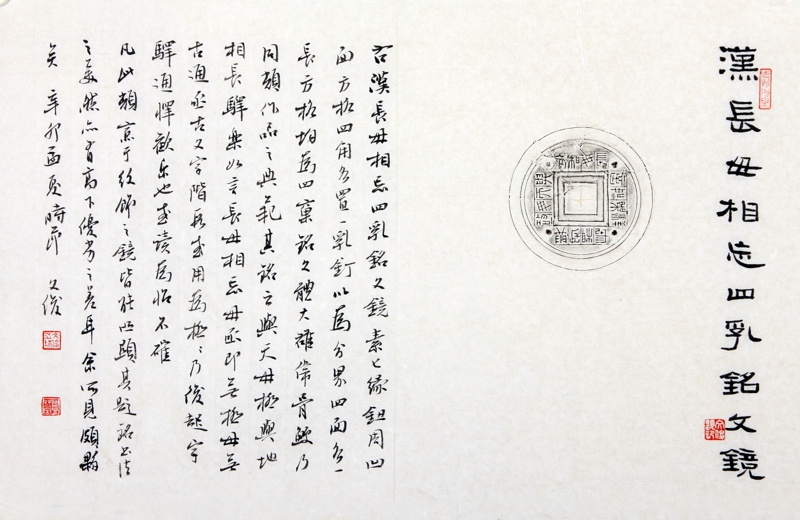 漢長毋相忘四乳銘文鏡
右漢長毋相忘四乳銘文鏡素緣鈕周凹
面方格四角各置一乳釘以為分界四面各一
長方格均為四銘文體大雄偉骨鯁乃
同類作品之典範其銘云與天毋極與地
相長驩樂如言長毋相忘毋亟即無極毋無
古通亟古文字階段或用為極極乃後起字
驛通懌歡樂也或讀為怡不確
凡此類紋飾之鏡皆凸顯其題銘書法
之美然亦有高下優劣之差耳余所見頗夥
矣 辛卯孟夏時節 文俊